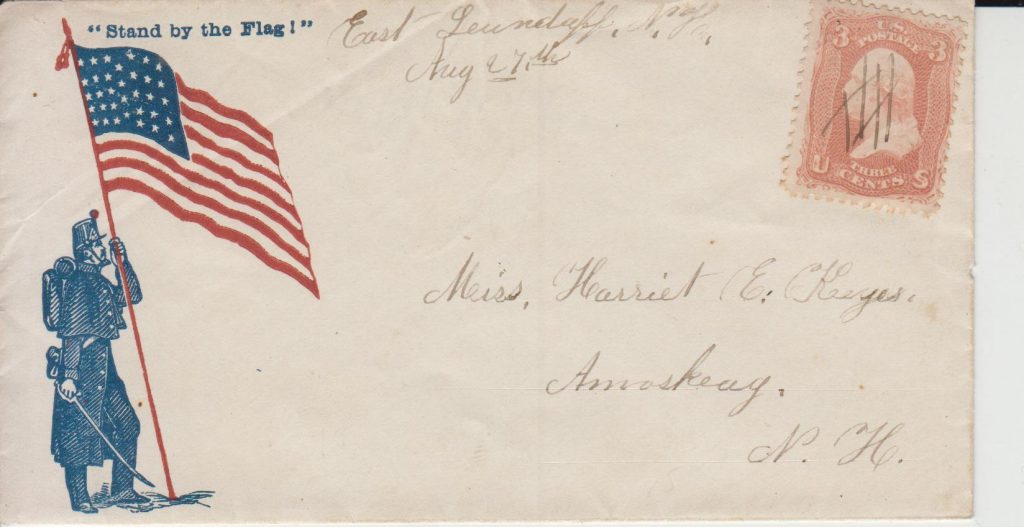 "Stand by the Flag!"
East N.H.
Aug 27th
U.S.
POSTAGE
3 3
THREE
CENTS
U S
Miss, Harriet E. Keyes.
Amoskeag.
N. H.